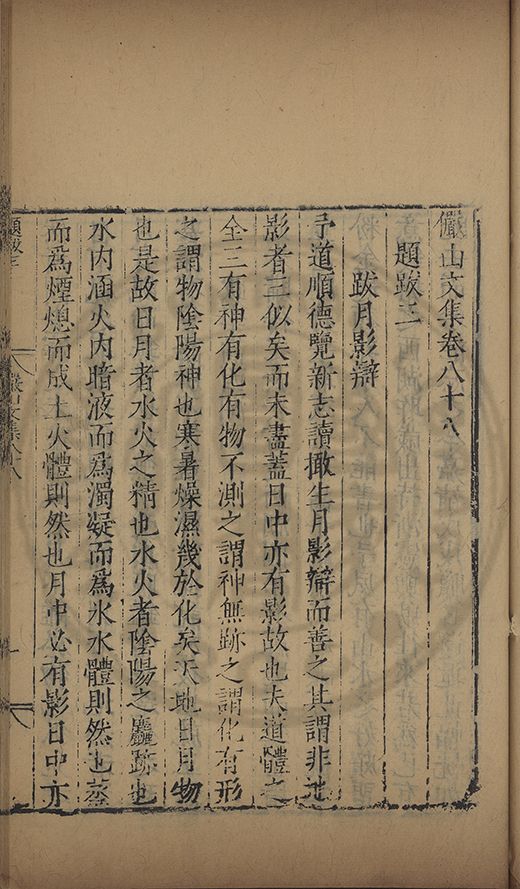 儼山文集卷八十八
題跋三
跋月影辯
予道順德覽新志讀掀生月影辯而善之其謂非地
影者三似矣而未盡蓋日中亦有影故也夫道體之
全三有神有化有物不測之謂神無跡之謂化有形
之謂物陰陽神也寒暑燥濕幾於化矣天地日月物
也是故日月者水火之精也水火者陰陽之麤跡也
水內涵火內暗液而爲濁凝而爲氷水體則然也蒸
而爲煙熄而成土火體則然也月中必有影日中亦